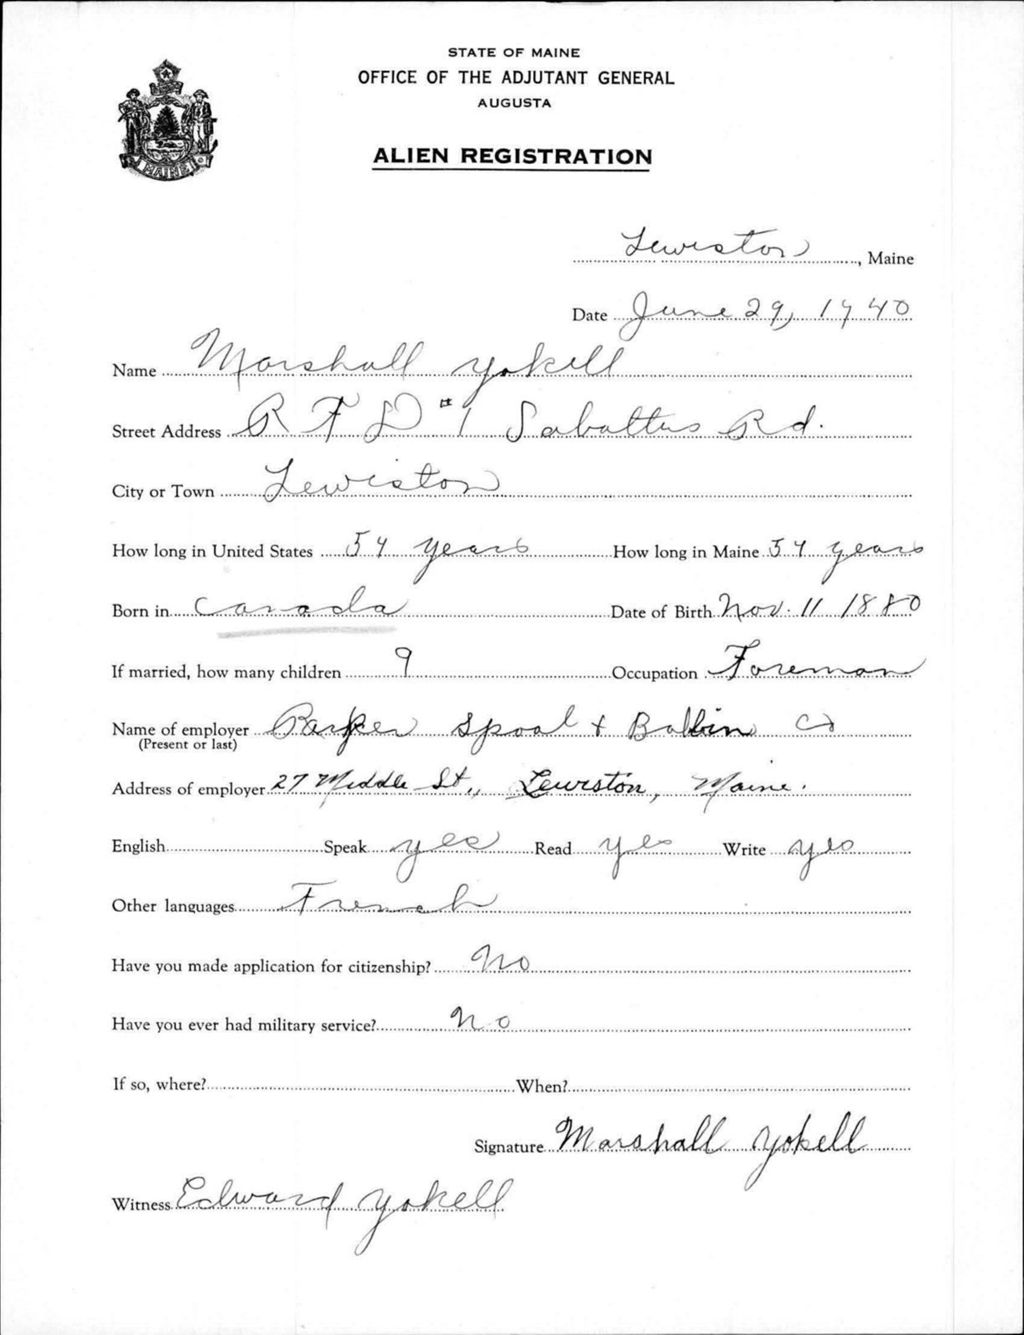 STATE OF MAINE
OFFICE OF THE ADJUTANT GENERAL
AUGUSTA
MAINE
ALIEN REGISTRATION
Lewiston, Maine
Date June 29, 1940
Name Marshall Yokell
Street Address R F D #1 Sabattus Rd.
City or Town Lewiston
How long in United States 54 years How long in Maine 54 years
Born in Canada Date of Birth Nov. 11 1880
If married, how many children 9 Occupation Foreman
Name of employer Parker Spool + Bobbin Co
(Present or last)
Address of employer 27 Middle St., Lewiston, Maine.
English Speak yes Read yes Write yes
Other languages French
Have you made application for citizenship? No
Have you ever had military service? No
If so, where? When?
Signature Marshall Yokell
Witness Edward Yokell